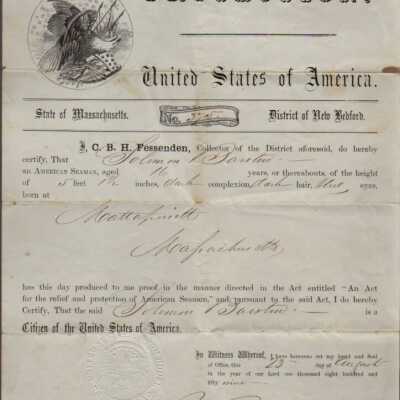 United States of America.
State of Massachusetts. No. District of New Bedford.
I, C. B. H. Fessenden, Collector of the District aforesaid, do hereby
certify, That Solomon
an AMERICAN SEAMAN, aged 16 years, or thereabouts, of the height
of 5 feet inches, dark complexion, dark hair, eyes,
born at
Mattapoisett
Massachusetts
has this day produced to me proof in the manner directed in the Act entitled "An Act
for the relief and protection of American Seamen," and pursuant to the said Act, I do hereby
Certify, That the said Solomon is a
Citizen of the United States of America.
In Witness Whereof, I have hereunto set my Hand and Seal
of Office, this 23 day of August
in the year of our Lord one thousand eight hundred and
fifty nine